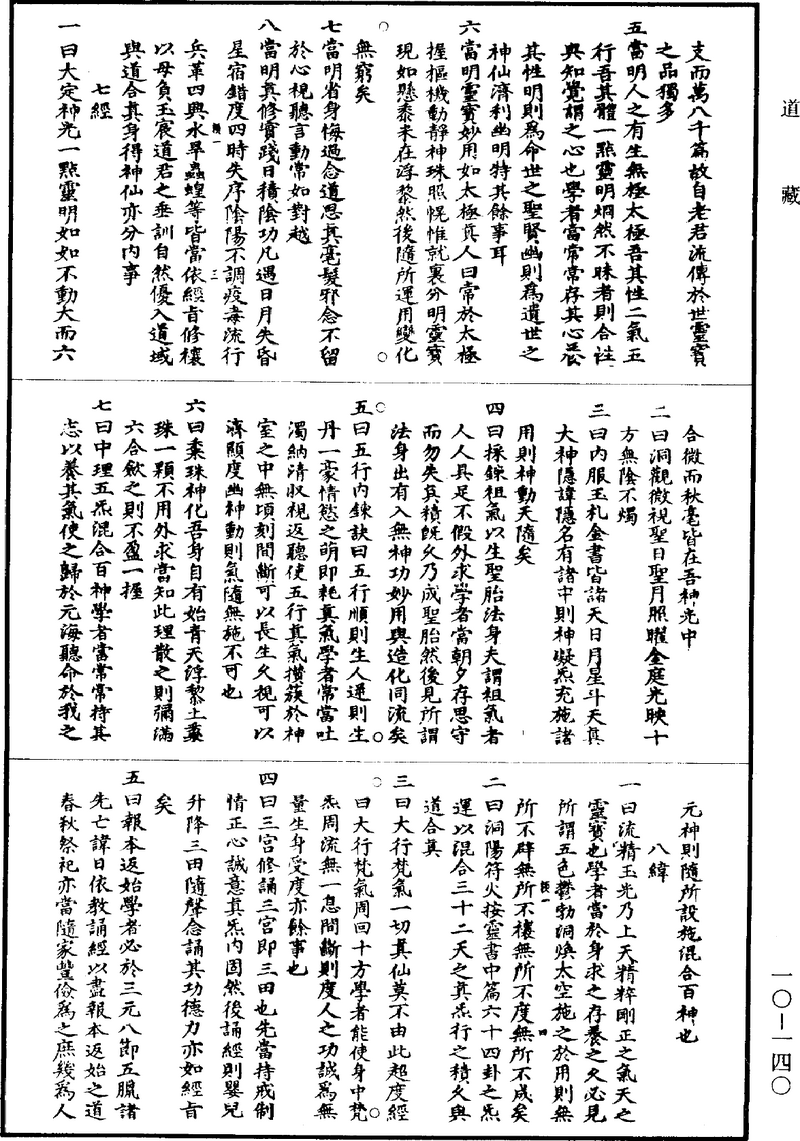 道藏
支而萬八千篇故自老君流傳於世靈寶
之品獨多
五當明人之有生無極太極吾其性二氣五
行吾其體一點靈明烱然不昧者則合性
與知覺謂之心也學者當常常存其心養
其性明則為命世之聖賢幽則為遺世之
神仙濟利幽明特其餘事耳
六當明靈寶妙用如太極真人曰常於太極
握樞機動靜神珠照恍惟就裏分明靈寶
現如懸黍米在浮黎然後隨所運用變化
無窮矣
七當明省身悔過念道思真毫髮邪念不留
於心視聽言動常如對越
八當明真修實踐日積陰功凡遇日月失昏
星宿錯度四時失序陰陽不調疫毒流行
兵革四興水旱蟲蝗等皆當依經旨修禳
以毋負玉宸道君之垂訓自然優入道域
與道合真身得神仙亦分内事
七經
一曰大定神光一點靈明如如不動大而六
合微而秋毫皆在吾神光中
二曰洞觀微視聖日聖月照耀金庭光映十
方無陰不燭
三曰内服玉札金書皆諸天日月星斗天真
大神隱諱隱名有諸中則神凝炁充施諸
用則神動天隨矣
四曰採鍊祖氣以生聖胎法身夫謂祖氣者
人人具足不假外求學者當朝夕存思守
而勿失真積既久乃成聖胎然後見所謂
法身出有入無神功妙用與造化同流矣
五曰五行内鍊訣曰五行順則生人逆則生
丹一豪情慾之萌即耗真氣學者常當吐
濁納清收視返聽使五行真氣攢簇於神
室之中無頃刻間斷可以長生久視可以
濟顯度幽神動則氣隨無施不可也
六曰黍珠神化吾身自有始青天浮黎土黍
珠一顆不用外求當知此理散之則彌滿
六合斂之則不盈一握
七曰中理五炁混合百神學者當常常持其
志以養其氣使之歸於元海聽命於我之
元神則隨所設施混合百神也
八緯
一曰流精玉光乃上天精粹剛正之氣天之
靈寶也學者當於身求之存養之久必見
所謂五色鬱勃洞煥太空施之於用則無
所不辟無所不禳無所不度無所不成矣
二曰洞陽符火按靈書中篇六十四卦之炁
運以混合三十二天之真炁行之積久與
道合真
三曰大行梵氣一切真仙莫不由此超度經
曰大行梵氣周回十方學者能使身中梵
炁周流無一息間斷則度人之功誠為無
量生身受度亦餘事也
四曰三宮修誦三宮即三田也先當持戒制
情正心誠意真炁内固然後誦經則嬰兒
升降三田隨聲念誦其功德力亦如經旨
矣
五曰報本返始學者必於三元八節五臘諸
先亡諱日依教誦經以盡報本返始之道
春秋祭祀亦當隨家豐儉為之庶幾為人
一〇—一四〇